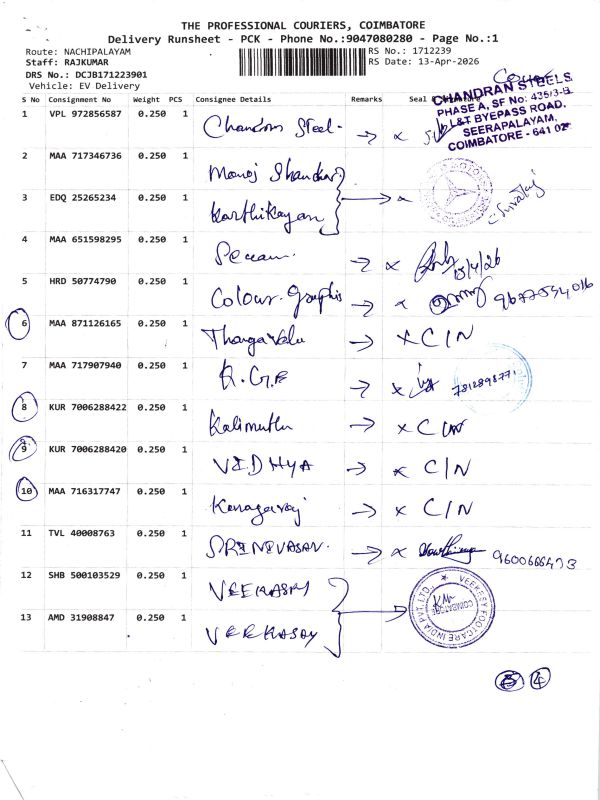 THE PROFESSIONAL COURIERS, COIMBATORE
Delivery Runsheet - PCK - Phone No.:9047080280 - Page No.:1
Route: NACHIPALAYAM
RS No.: 1712239
Staff: RAJKUMAR
RS Date: 13-Apr-2026
DRS No.: DCJB171223901
Vehicle: EV Delivery
S No Consignment No Weight PCS Consignee Details Remarks Seal &
CHANDRAN STEELS
PHASE A, SF No: 435/3-B
L&T BYEPASS ROAD,
SEERAPALAYAM,
COIMBATORE - 641 02
1 VPL 972856587 0.250 1 Chandran Steel. → x
2 MAA 717346736 0.250 1 Manoj Shankar
3 EDQ 25265234 0.250 1 Karthikayan → x
4 MAA 651598295 0.250 1 → x 13/4/26
5 HRD 50774790 0.250 1 Colour. Graphis → x 9677554016
6 MAA 871126165 0.250 1 Thangavelu → x C/N
7 MAA 717907940 0.250 1 R.G.E → x 7812898771
8 KUR 7006288422 0.250 1 Kalimuthu → x C/N
9 KUR 7006288420 0.250 1 VIDHYA → x C/N
10 MAA 716317747 0.250 1 Kanagaraj → x C/N
11 TVL 40008763 0.250 1 SRINIVASAN. → x 9600666473
12 SHB 500103529 0.250 1 VEEKASAY
13 AMD 31908847 0.250 1 VEEKASAY →
VEEKESY FOOTCARE INDIA PVT. LTD.
COIMBATORE
4